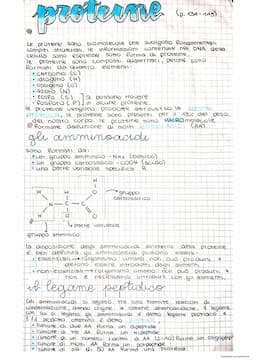 proteine
(p. 131-143)
Le proteine sono biomolecole che svolgono fondamentali
compiti strutturali, le informazioni contenute nel DNA della
cellula sono espresse sotto forma di proteine.
Le proteine sono composti quaternari, perché sono
formati da quattro elementi:
• carbonio (C)
• idrogeno (H)
• ossigeno (O)
• azoto (N)
• zolfo (S) si possono trovare
• fosforo (P) in alcune proteine.
Le proteine vengono prodotte attraverso la
le proteine sono presenti per il 15% del peso
del nostro corpo. Le proteine sono MACROmolecole
formate dall'unione di molti (AA)
gli amminoacidi
sono formati da:
• un gruppo amminico -NH₂ (basico)
• un gruppo carbossilico -COOH (acido)
• una parte variabile specifica R
H
H
O
N
C
C
H
R
O
H
gruppo
carbossilico
parte variabile
gruppo amminico
la disposizione degli amminoacidi all'interno della proteina
è ben definita, gli amminoacidi possono essere:
• essenziali → l'organismo umano non può produrli e
devono essere introdotti dagli alimenti.
• non-essenziali → l'organismo umano può produrli e
non è necessario introdurli con gli alimenti.
il legame peptidico
Gli amminoacidi si legano tra loro tramite reazioni di
condensazione, dando origine a catene amminoacidiche. Il legame
con cui si legano gli amminoacidi è detto legame peptidico e
il prodotto ottenuto è detto
• l'unione di due AA forma un dipeptide
• l'unione di tre AA forma un tripeptide
• l'unione di un numero ridotto di AA forma un oligopeptide
• l'unione di più di 50 AA forma una proteina